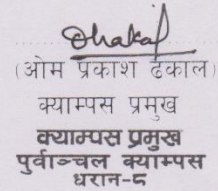 Dhakal
(ओम प्रकाश ढकाल)
क्याम्पस प्रमुख
क्याम्पस प्रमुख
पुर्वाञ्चल क्याम्पस
धरान-८